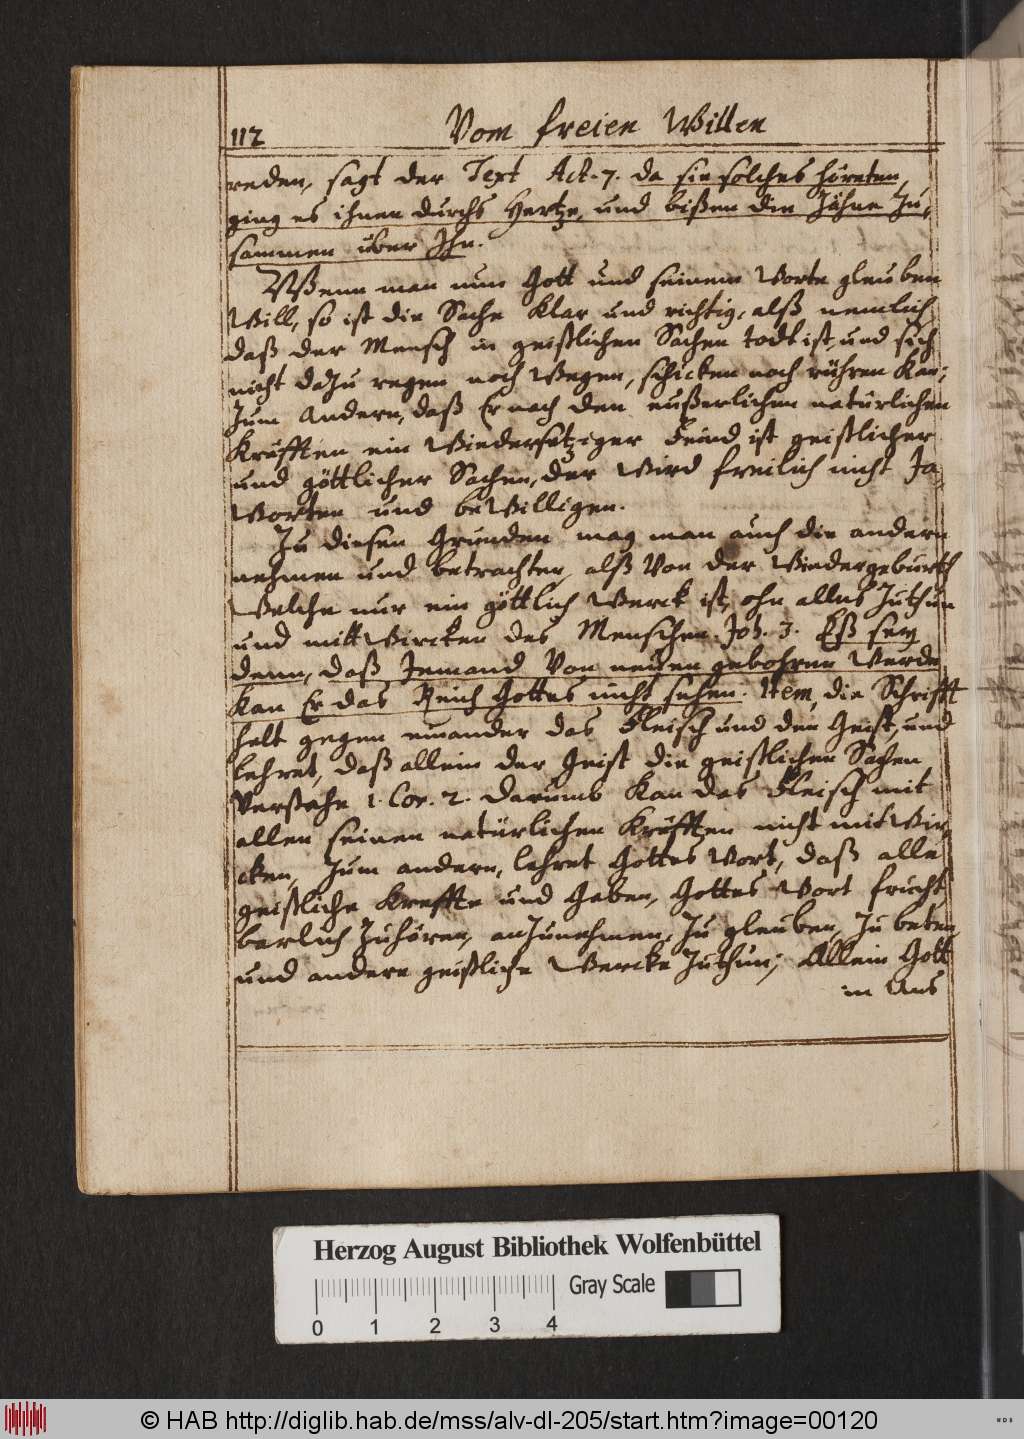 112
Vom freien Willen
reden, sagt der Text Act. 7. da sie solches höreten,
ging es ihnen durchs Hertze, und bißen die Zähne Zu,
sammen über Ihn.
Wenn man nun Gott und seinem Worte gleuben
Will, so ist die Sache klar und richtig, alß nemlich
daß der Mensch in geistlichen Sachen todt ist, und sich
nicht daZu regen noch Wegen, schicken noch rühren kan;
Zum Andern, daß Er nach den eußerlichen natürlichen
Kräfften ein Wiedersetziger Feind ist geistlicher
und göttlicher Sachen, der Wird freilich nicht Ja,
Worten und beWilligen.
Zu diesen Grunden mag man auch die andern
nehmen und betrachten, alß Von der Wiedergeburth
Welche nur ein göttlich Werck ist, ohn alles Zuthun
und mitt Wircken des Menschen. Joh. 3. Eß sey
denn, daß Jemand Von neüen gebohren Werde
kan Er das Reich Gottes nicht sehen. Item, die Schrifft
helt gegen einander das Fleisch und den Geist, und
lehret, daß allein der Geist die geistlichen Sachen
Verstehe 1. Cor. 2. darumb kan das Fleisch mit
allen seinen natürlichen Kräfften nicht mit Wir,
cken, Zum andern, lehret Gottes Wort, daß alle
geistliche Kreffte und Gaben, Gottes Wort frucht,
barlich Zuhören, anZunehmen, Zu gleuben, Zu beten
und andere geistliche Wercke Zuthun, Allein Gott
in Uns
Herzog August Bibliothek Wolfenbüttel
Gray Scale
0 1 2 3 4
© HAB http://diglib.hab.de/mss/alv-dl-205/start.htm?image=00120